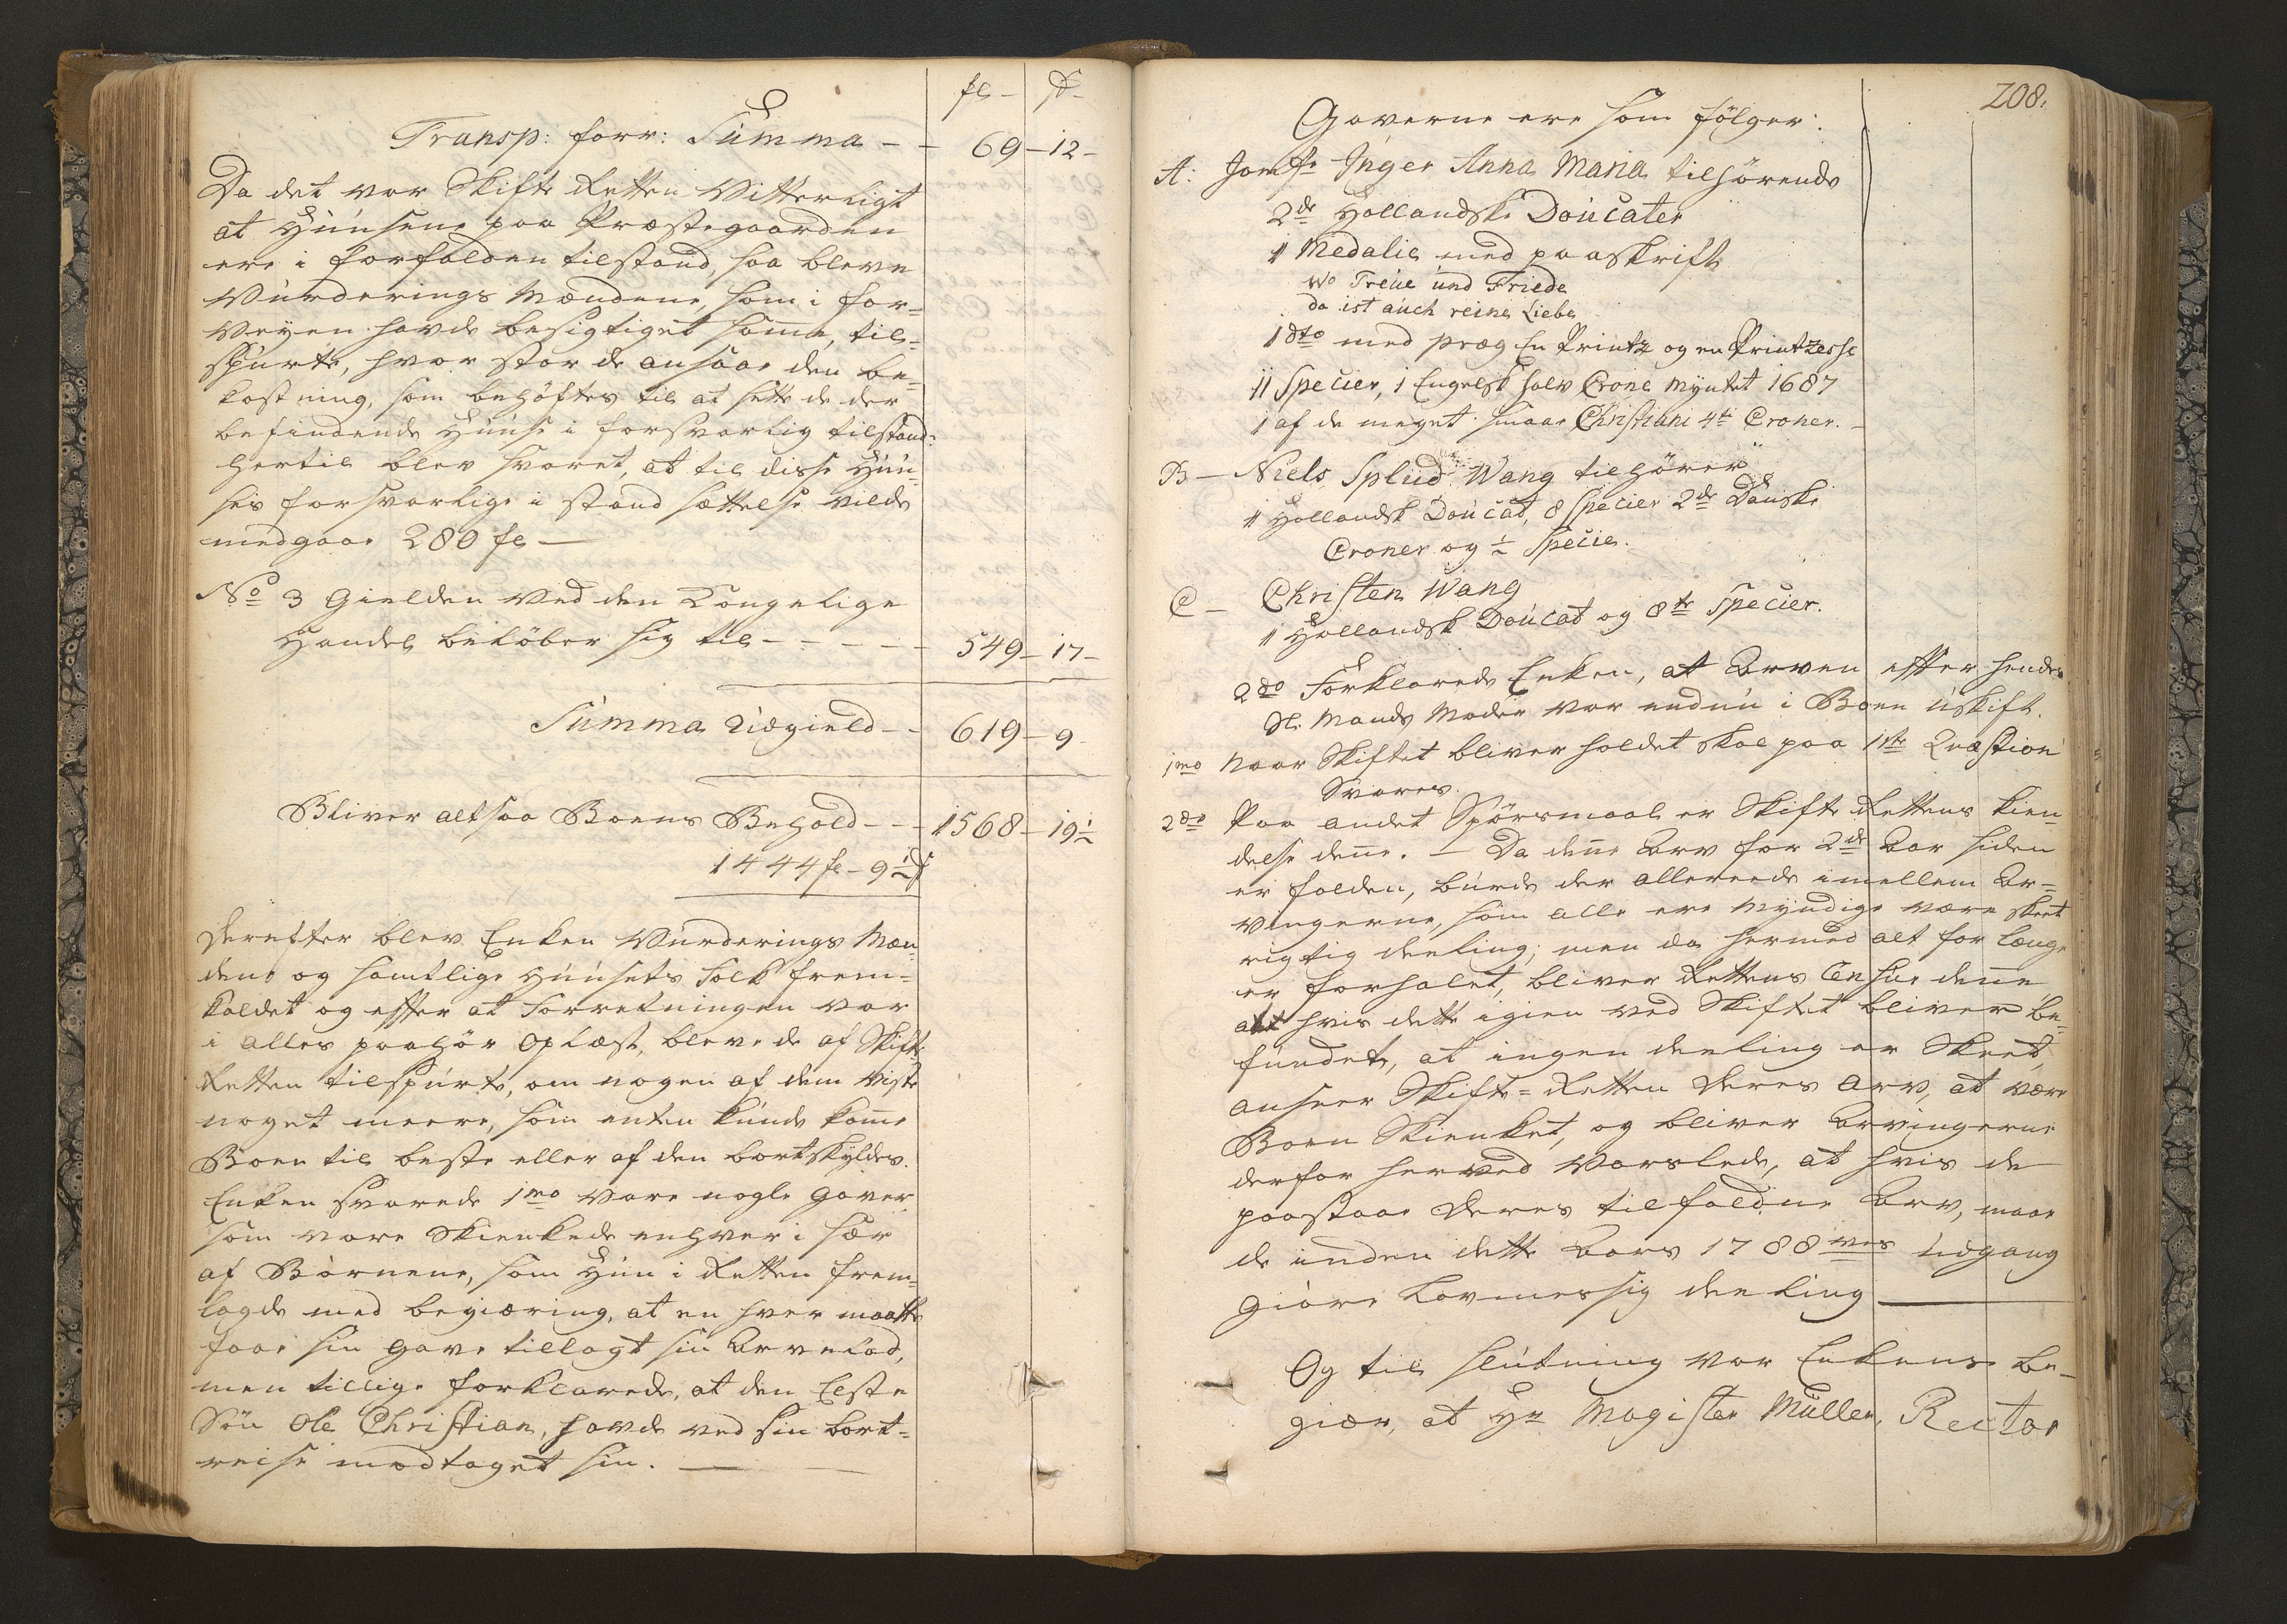 rd - s -
Transp: forr: Summa - - 69 - 12 -
Da det var Skifte Retten Vitterligt
at Huusene paa Præstegaarden
ere i forfalden tilstand, saa bleve
Vurderings Mændene, som i for=
Veyen havde besigtiget same, til=
spurte, hvor stor de ansaae den be=
kostning, som behøftes til at sette de der
befindende Huuse i forsvarlig tilstand:
hertil blev svaret, at til disse Huu=
ses forsvarlige i stand sættelse vilde
medgaae 280 rd —
No 3 Gielden ved den Kongelige
Handel beløber sig til - - - - - 549 - 17 -
Summa Udgield - - 619 - 9
Bliver altsaa Boens Behold - - - 1568 - 19½
1444 rd - 9½ s
Derefter blev Enken Vurderings Mæn=
dene og samtlige Huusets Folk frem=
kaldet og efter at Forretningen var
i alles paahør Oplæst, bleve de af Skifte
Retten tilspurte, om nogen af dem viste
noget meere, som enten kunde kome
Boen til beste eller af den bortskyldes.
Enken svarede 1mo vare nogle gaver
som vare Skienkede enhver i sær
af Børnene, som Hun i Retten frem=
lagde med begiæring, at en hver maatte
faae sin gave tillagt sin Arvelod,
men tillige forklarede, at den Elste
Søn Ole Christian, havde ved sin bort=
reise modtaget sin. —
208.
Gaverne ere som følger:
A: Jomfr Inger Anna Maria tilhørende
2de Hollandske Doucater
1 Medalie med paaskrift
Wo Treue und Friede
da ist auch reine Liebe
1 dto med præg En Printz og en Printzesse
11 Specier, 1 Engelsk halv Crone myntet 1687
1 af de meget smaae Christiani 4ti Croner. -
B — Niels Splud Wang tilhører
1 Hollandsk Doucat, 8 Specier 2de Danske
Croner og ½ Specie.
C — Christen Wang
1 Hollandsk Doucat og 8te Specier.
2do Forklarede Enken, at Arven efter hendes
Sl. Mands Moder var endnu i Boen uskift.
1mo Naar Skiftet bliver holdet skal paa 1ste Qvæstion
Svares.
2do Paa andet Spørsmaal er Skifte Rettens kien=
delse dene. — Da dene Arv for 2de Aar siden
er falden, burde der allereede imellem Ar=
vingerne, som alle ere Myndige være skeet
rigtig deeling; men da hermed alt for længe
er forhalet, bliver Rettens Censur dene
at hvis dette igien ved Skiftet bliver be=
fundet, at ingen deeling er Skeet,
anseer Skifte=Retten Deres Arv, at være
Boen Skienket, og bliver Arvingerne
derfor herved Varslede, at hvis de
paastaae Deres tilfaldne Arv, maae
de inden dette Aars 1788des Udgang
giøre Lovmessig deeling —
Og til slutning var Enkens be=
giær, at Hr Magister Müller, Rector